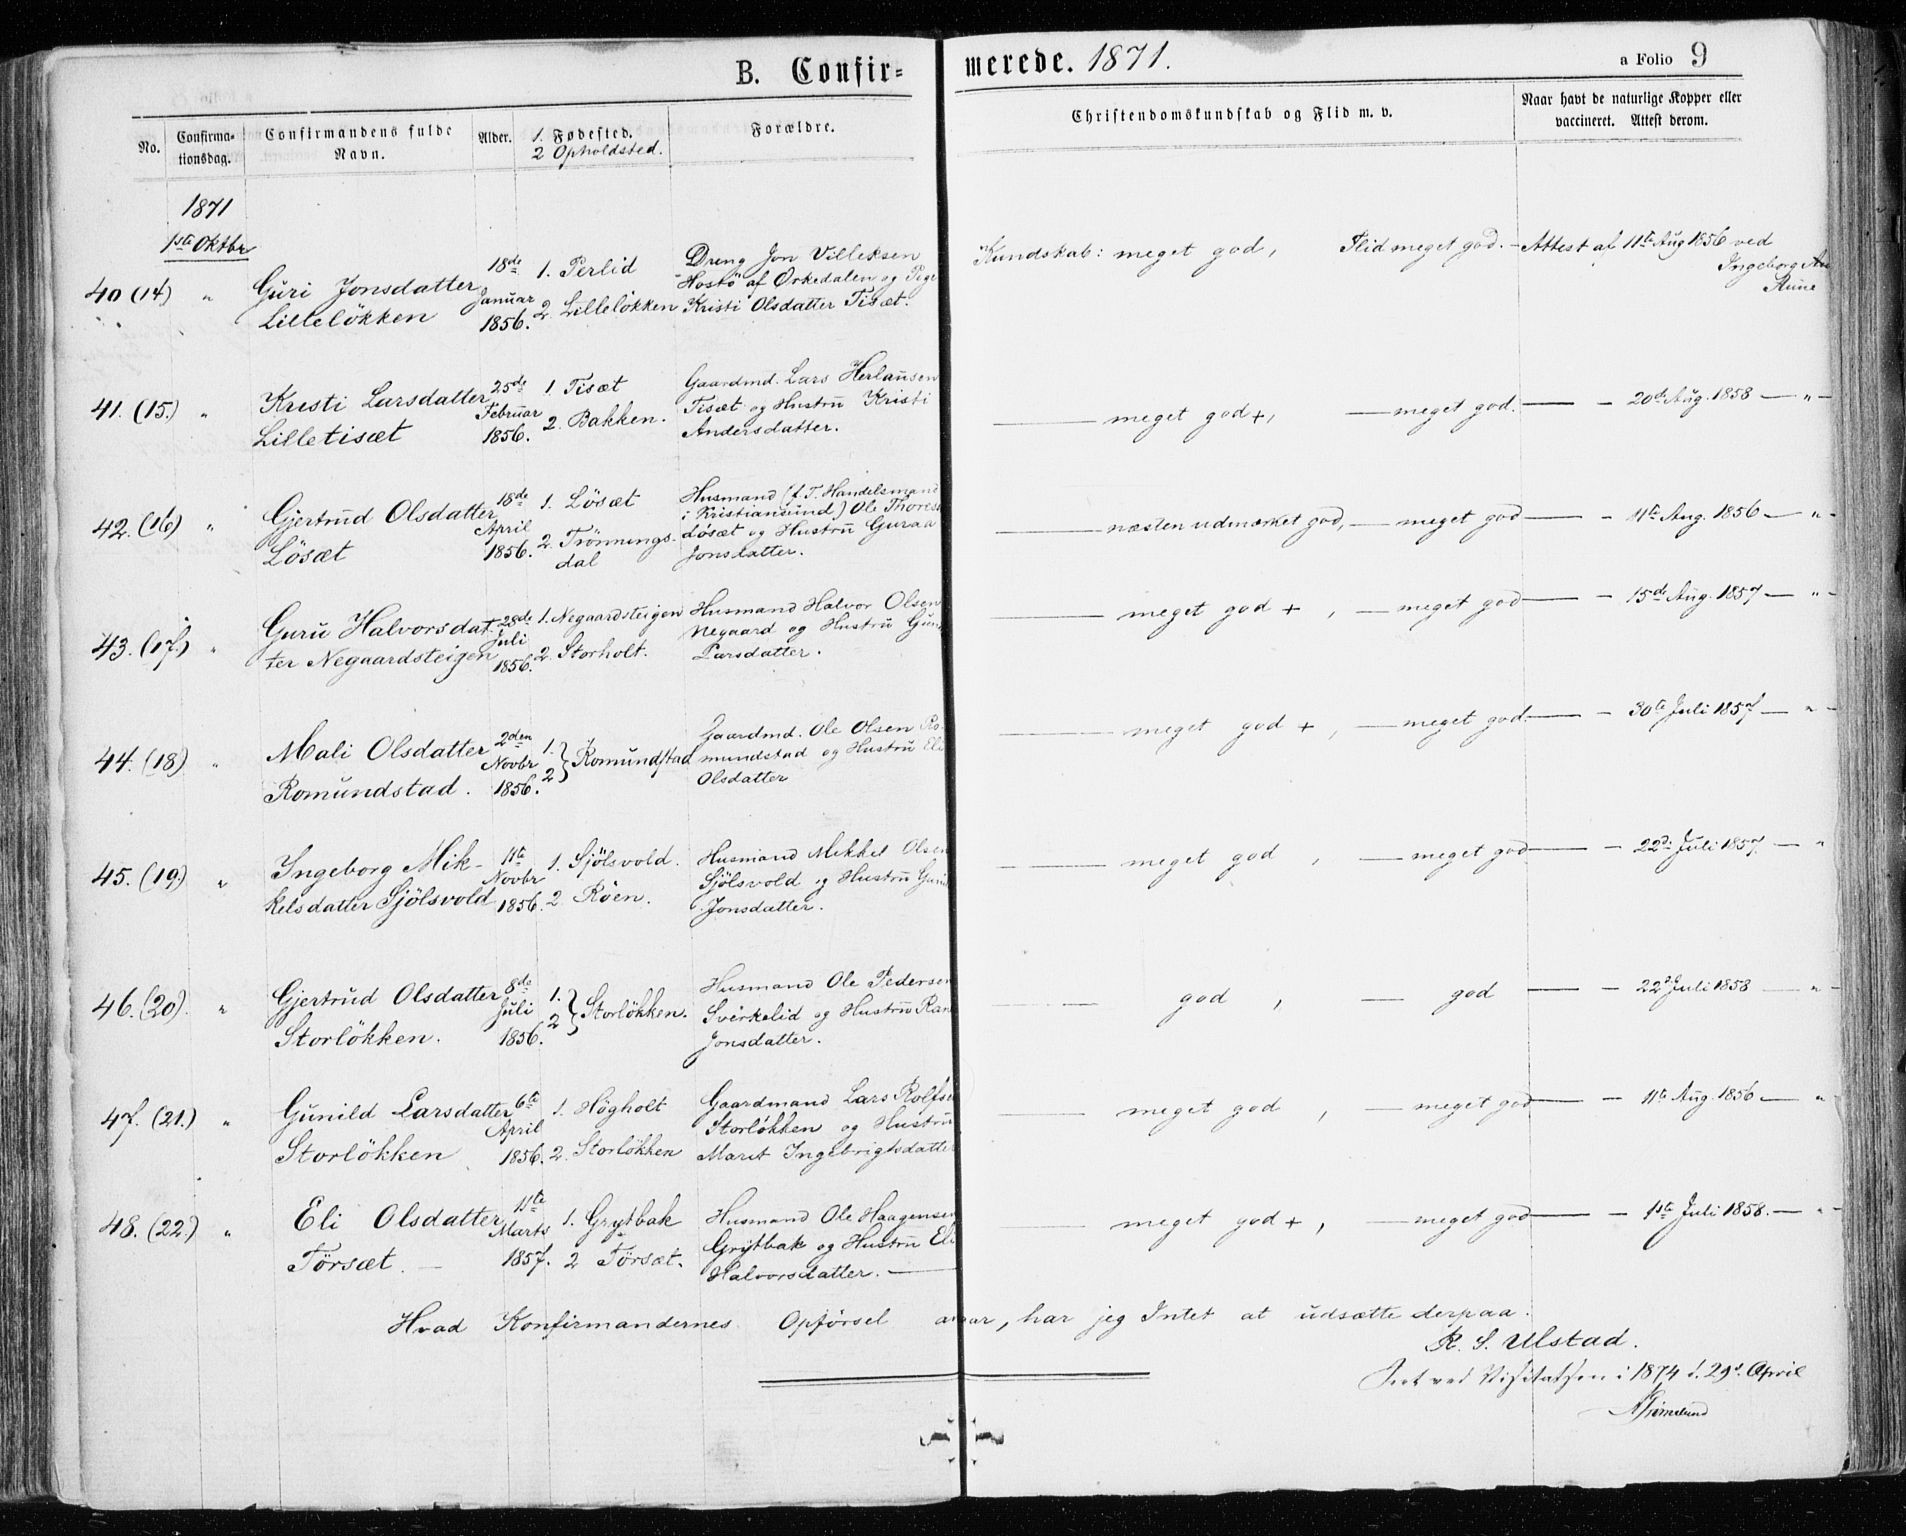 B. Confir-
merede. 1871.
a Folio 9
No.
Confirma-
tionsdag.
Confirmandens fulde
Navn.
Alder.
1. Fødested.
2 Opholdsted.
Forældre.
Christendomskundskab og Flid m. v.
Naar havt de naturlige Kopper eller
vaccineret. Attest derom.
1871
1ste Oktbr
40 (14) "
Guri Jonsdatter
Lilleløkken
18de
Januar
1856.
1. Perlid
2. Lilleløkken
Dreng Jon Villeksen
Hostö af Orkedalen og Pige
Kristi Olsdatter Tisæt.
Kundskab: meget god, Flid meget god. - Attest af 11te Aug 1856 ved
Ingeborg
Aune
41. (15.) "
Kristi Larsdatter
Lilletisæt
25de
Februar
1856.
1. Tisæt
2. Bakken.
Gaardmd. Lars Herlausen
Tisæt og Hustru Kristi
Andersdatter.
— meget god +, — meget god. — - 20de Aug. 1858 — " -
42. (16) "
Gjertrud Olsdatter
Lösæt
18de
April
1856.
1. Lösæt
2. Trönnings-
dal
Husmand (f. T. Handelsmand
i Kristiansund) Ole Thores
Lösæt og Hustru Guraa
Jonsdatter.
— næsten udmærket god, — meget god — - 11te Aug. 1856 — " -
43. (17) "
Guru Halvorsdat-
ter Negaardsteigen
28de
Juli
1856.
1. Negaardsteigen
2. Storholt.
Husmand Halvor Olsen
Negaard og Hustru
Larsdatter.
— meget god + , — meget god — - 15de Aug. 1857 — " -
44. (18) "
Mali Olsdatter
Romundstad.
2den
Novbr
1856.
1.
2 } Romundstad
Gaardmd. Ole Olsen Ro-
mundstad og Hustru Eli
Olsdatter
— meget god + , — meget god — - 30te Juli 1857 — " -
45. (19.) "
Ingeborg Mik-
kelsdatter Sjölsvold
11te
Novbr
1856.
1. Sjölsvold.
2. Röen.
Husmand Mikkel Olsen
Sjölsvold og Hustru Guri
Jonsdatter.
— meget god , — meget god — - 22de Juli 1857. — "
46. (20). "
Gjertrud Olsdatter
Storløkken.
8de
Juli
1856.
1.
2 } Storløkken.
Husmand Ole Pedersen
Svirkelid og Hustru
Jonsdatter.
— god , — god — - 22d Juli 1858 — " -
47. (21.) "
Gunild Larsdatter
Storløkken
6te
April
1856.
1. Högholt
2. Storløkken
Gaardmand Lars Rolfsen
Storløkken og Hustru
Marit Ingebrigtsdatter
— meget god , — meget god — - 11te Aug. 1856 — "
48. (22.) "
Eli Olsdatter
Törsæt. —
11te
Marts
1857.
1. Grytbak
2 Törsæt.
Husmand Ole Haagensen
Grytbak og Hustru Eli
Halvorsdatter. —
— meget god + , — meget god — - 1ste Juli 1858. — " -
Hvad Konfirmandernes Opförsel angaar, har jeg Intet at udsætte derpaa.
R. S. Ulstad.
Seet ved Visitatsen i 1874 d. 29d April